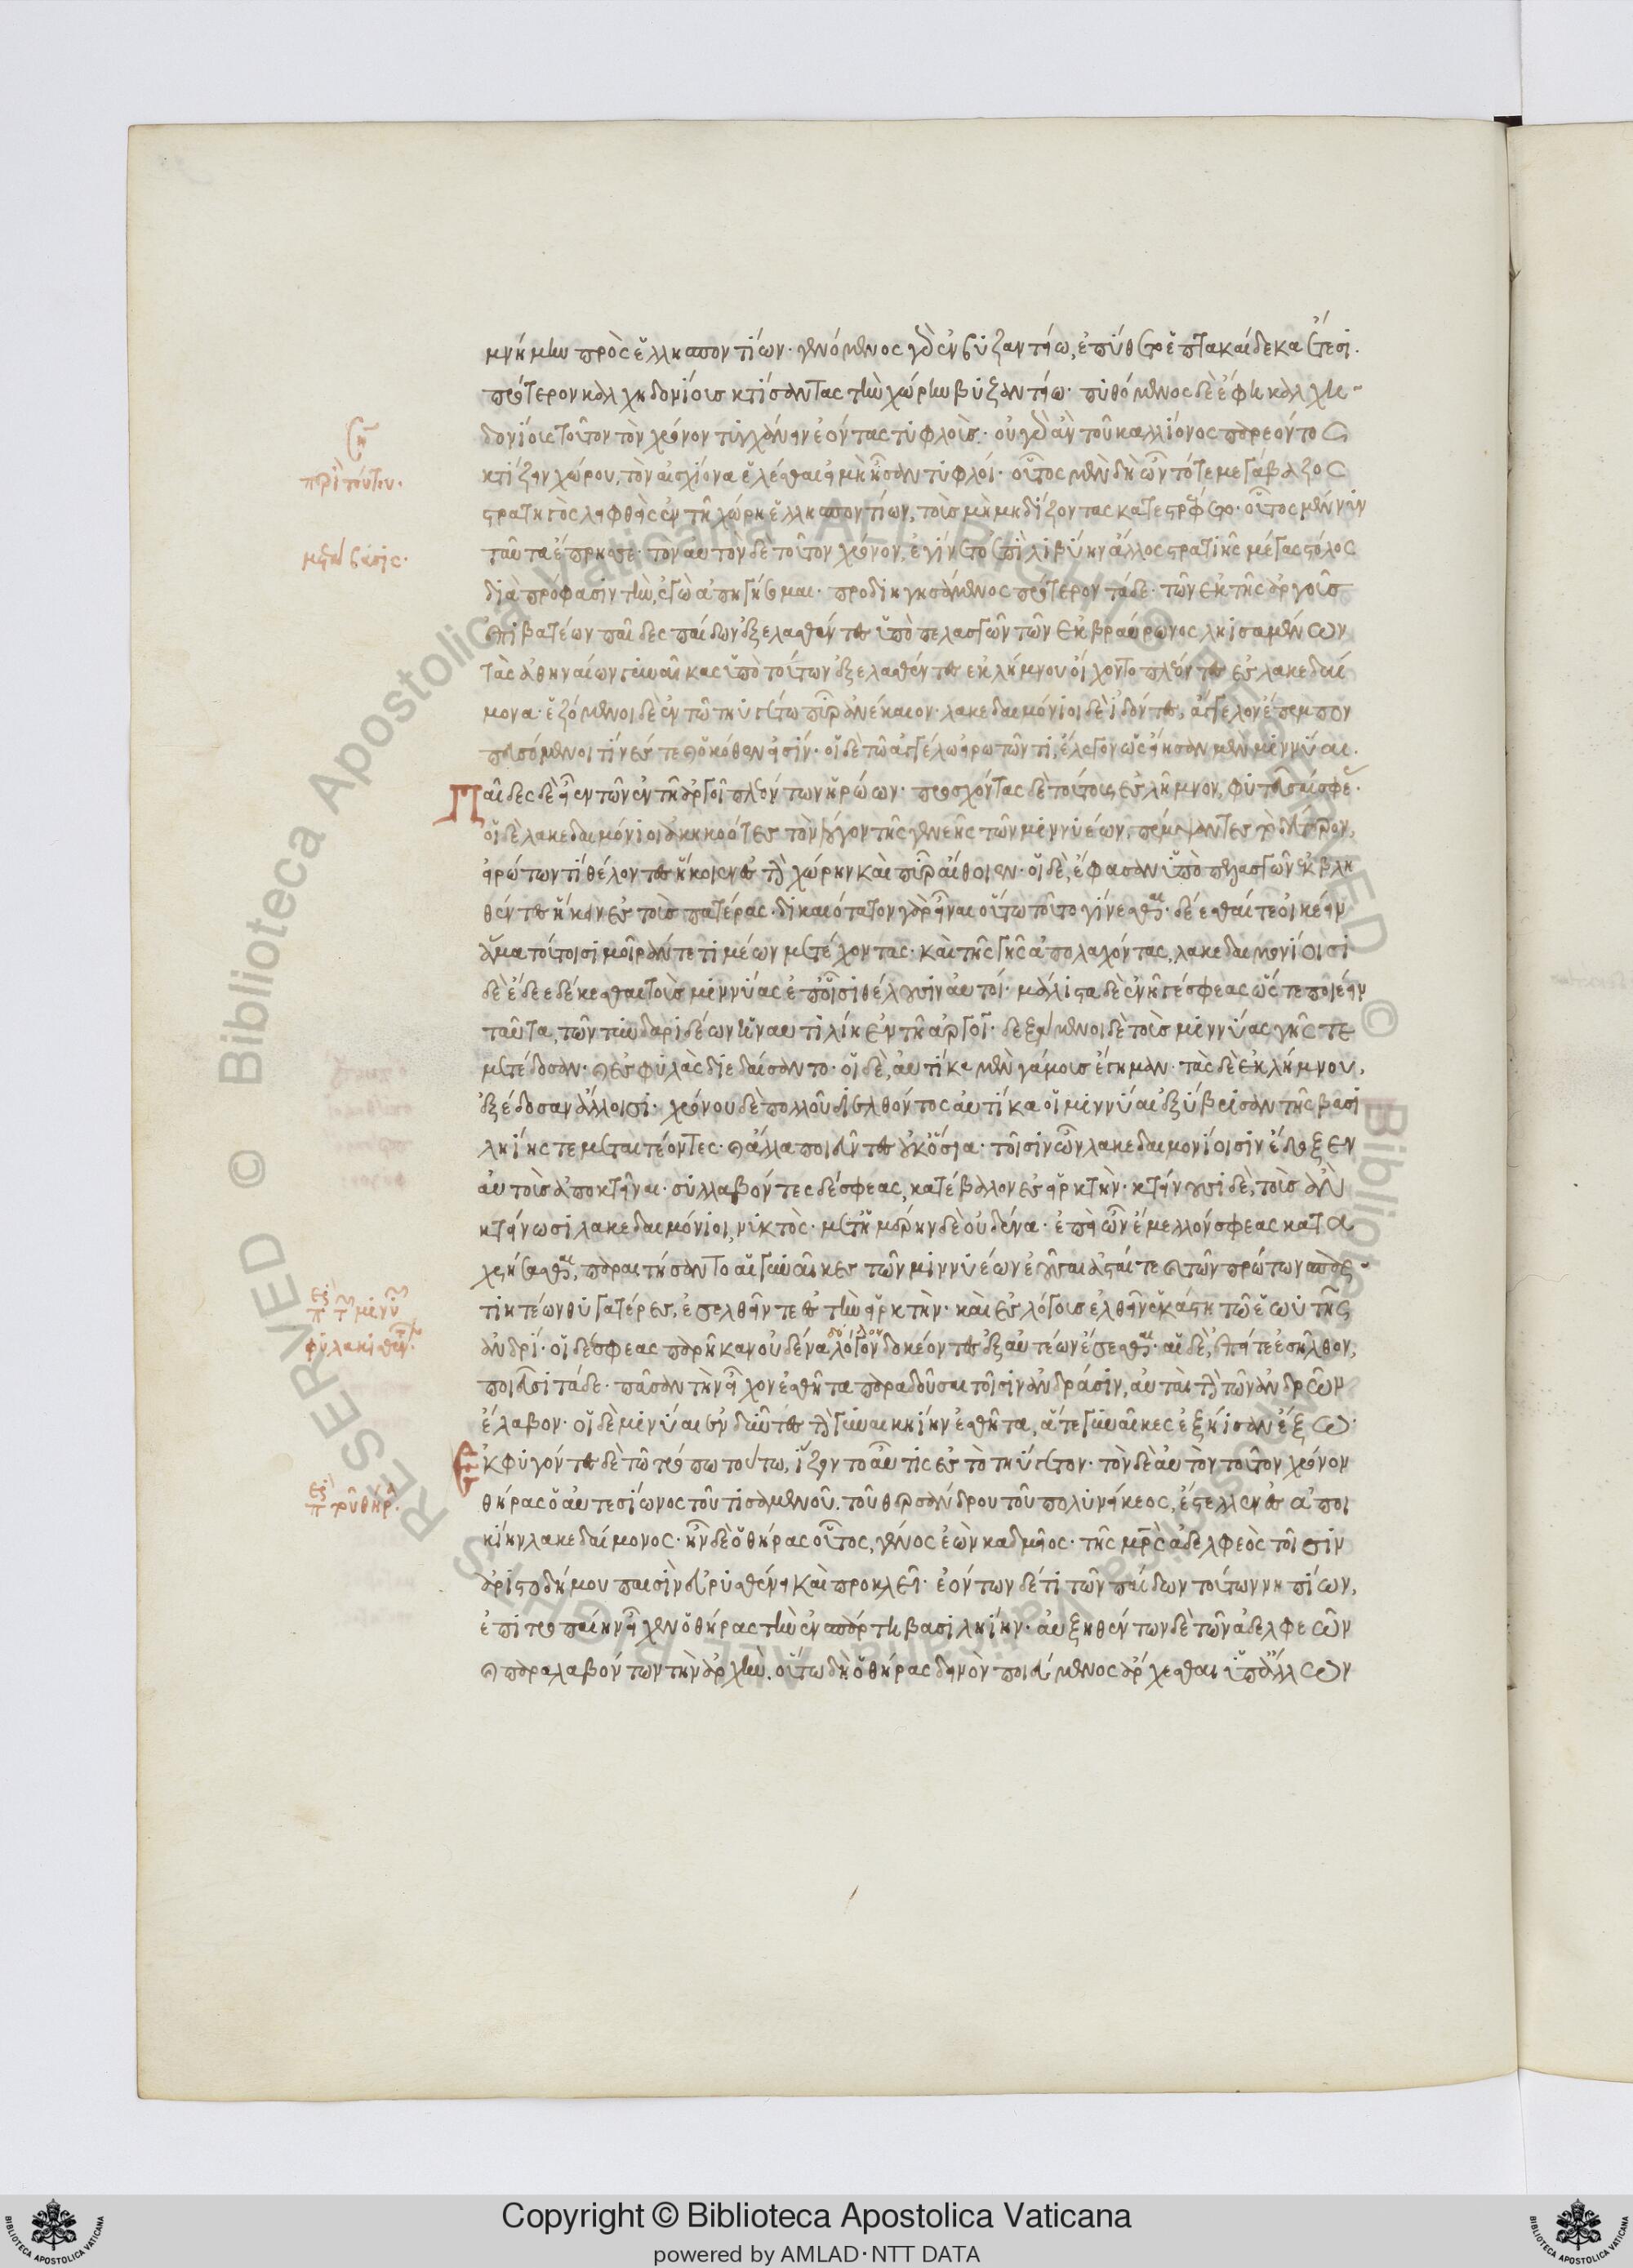 μνήμην πρὸς ἑλλησποντίων· γενόμενος γὰρ ἐν βυζαντίω, ἐπύθετο ἑπτακαίδεκα ἔτεσι
πρότερον καλχηδονίους κτίσαντας τὴν χώρην βυζαντίω· πυθόμενος δὲ ἔφη καλχη
δονίους τοῦτον τὸν χρόνον τυγχάνειν ἐόντας τυφλούς· οὐ γὰρ ἂν τοῦ καλλίονος παρεόντος
κτίζειν χώρου, τὸν αἰσχίονα ἑλέσθαι εἰ μὴ ἦσαν τυφλοί· οὗτος μὲν δὴ ὦν τότε μεγάβαζος
στρατηγὸς λειφθεὶς ἐν τῆ χώρη ἑλλησποντίων, τοὺς μὴ μηδίζοντας κατεστρέφετο· οὗτος μέν νυν
ταῦτα ἔπρησσε· τὸν αὐτὸν δὲ τοῦτον χρόνον, ἐγίνετο ἐπὶ λιβύην ἄλλος στρατιῆς μέγας στόλος
διὰ πρόφασιν τὴν ἐγὼ ἀπηγήσομαι· προδιηγησάμενος πρότερον τάδε· τῶν ἐκ τῆς ἀργοῦς
ἐπιβατέων παῖδες παίδων ἐξελασθέντες ὑπὸ πελασγῶν τῶν ἐκ βραυρῶνος ληισαμένων
τὰς ἀθηναίων γυναῖκας ὑπὸ τούτων ἐξελασθέντες ἐκ λήμνου οἴχοντο πλέοντες ἐς λακεδαί
μονα· ἑζόμενοι δὲ ἐν τῶ τηυγέτω πῦρ ἀνέκαιον· λακεδαιμόνιοι δὲ ἰδόντες, ἄγγελον ἔπεμπον
πευσόμενοι τίνες τε καὶ ὁκόθεν εἰσίν· οἱ δὲ τῶ ἀγγέλω εἰρωτῶντι, ἔλεγον ὡς εἴησαν μὲν μιννύαι.
Παῖδες δὲ εἶεν τῶν ἐν τῆ ἀργοῖ πλεόντων ἡρώων· προσχόντας δὲ τούτους ἐς λῆμνον, φυτεῦσαί σφε·
οἱ δὲ λακεδαιμόνιοι ἀκηκοότες τὸν λόγον τῆς γενεῆς τῶν μιννυέων, πέμψαντες τὸ δεύτερον,
εἰρώτων τί θέλοντες ἥκοιεν ἐς τὴν χώρην καὶ πῦρ αἴθοιεν· οἱ δὲ, ἔφασαν ὑπὸ πελασγῶν ἐκβλη
θέντες ἥκειν ἐς τοὺς πατέρας· δικαιότατον γὰρ εἶναι οὕτω τοῦτο γίνεσθαι· δέεσθαί τε οἰκέειν
ἅμα τούτοισι μοῖράν τε τιμέων μετέχοντας· καὶ τῆς γῆς ἀπολαχόντας, λακεδαιμονίοισι
δὲ ἔδεε δέκεσθαι τοὺς μιννύας ἐπ' οἷσι θέλουσιν αὐτοί· μάλιστα δὲ ἐνῆγέ σφεας ὥστε ποιέειν
ταῦτα, τῶν τυνδαριδέων ἡ ναυτιλίη ἐν τῆ ἀργοῖ· δεξάμενοι δὲ τοὺς μιννύας γῆς τε
μετέδοσαν· καὶ ἐς φυλὰς διεδάσαντο· οἱ δὲ, αὐτίκα μὲν γάμους ἔγημαν· τὰς δὲ ἐκ λήμνου,
ἐξέδοσαν ἄλλοισι· χρόνου δὲ πολλοῦ διελθόντος αὐτίκα οἱ μιννύαι ἐξύβρισαν τῆς βασι
ληίης τε μεταιτέοντες· καὶ ἄλλα ποιεῦντες οὐκ ὅσια· τοῖσιν ὦν λακεδαιμονίοισιν ἔδοξεν
αὐτοὺς ἀποκτεῖναι· συλλαβόντες δέ σφεας, κατέβαλον ἐς εἱρκτήν· κτείνουσι δὲ, τοὺς ἂν
κτείνωσι λακεδαιμόνιοι, νυκτός· μετ' ἡμέρην δὲ οὐδένα· ἐπεὶ ὦν ἔμελλόν σφεας κατα
χρήσεσθαι, παραιτήσαντο αἱ γυναῖκες τῶν μιννυέων ἐοῦσαι ἀσταί τε καὶ τῶν πρώτων σπαρ
τιητέων θυγατέρες, ἐσελθεῖν τε ἐς τὴν εἱρκτήν· καὶ ἐς λόγους ἐλθεῖν ἑκάστη τῶ ἑωυτῆς
ἀνδρί· οἱ δέ σφεας παρῆκαν οὐδένα λόγον δοκέοντες ἐξ αὐτέων ἔσεσθαι· αἱ δὲ, ἐπεί τε ἐσῆλθον,
ποιεῦσι τάδε· πᾶσαν τὴν εἶχον ἐσθῆτα παραδοῦσαι τοῖσιν ἀνδράσιν, αὐταὶ τὴν τῶν ἀνδρῶν
ἔλαβον· οἱ δὲ μινύαι ἐνδύντες τὴν γυναικηίην ἐσθῆτα, ἅτε γυναῖκες ἐξήισαν ἔξω·
Ἐκφυγόντες δὲ τῶ τρόπω τούτω, ἵζοντο αὖτις ἐς τὸ τηύγετον· τὸν δὲ αὐτὸν τοῦτον χρόνον
θήρας ὁ αὐτεσίωνος τοῦ τισαμενοῦ. τοῦ θερσάνδρου τοῦ πολυνείκεος, ἔστελλεν ἐς ἀποι
κίην λακεδαίμονος· ἦν δὲ ὁ θήρας οὗτος, γένος ἐὼν καδμεῖος· τῆς μητρὸς ἀδελφεὸς τοῖσιν
ἀριστοδήμου παισὶν εὐρυσθένει καὶ προκλέϊ· ἐόντων δ' ἔτι τῶν παίδων τούτων νηπίων,
ἐπιτροπαίην εἶχεν ὁ θήρας τὴν ἐν σπάρτη βασιληίην· αὐξηθέντων δὲ τῶν ἀδελφεῶν
καὶ παραλαβόντων τὴν ἀρχήν. οὕτω δὴ ὁ θήρας δεινὸν ποιεύμενος ἄρχεσθαι ὑπ' ἄλλων